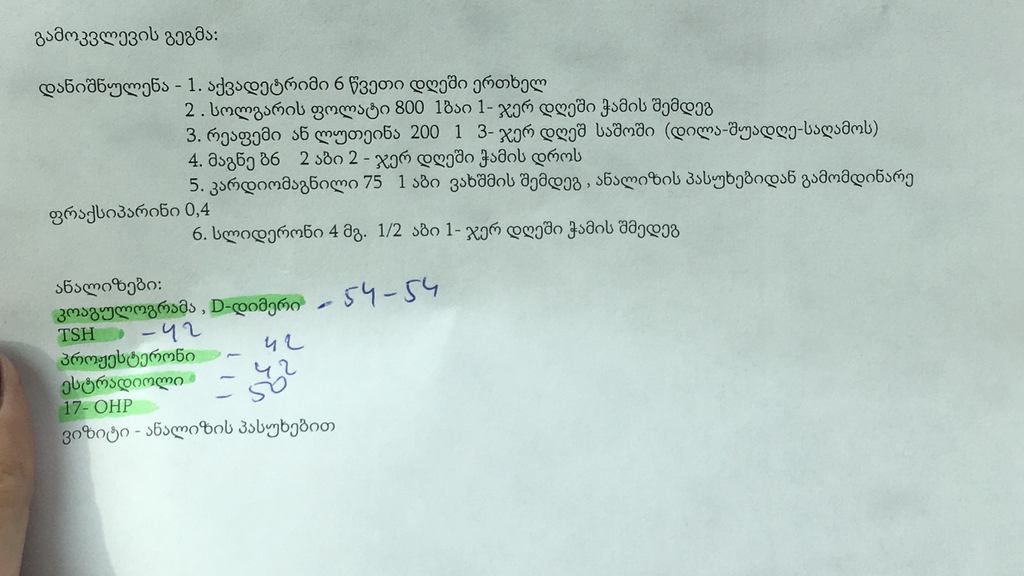 გამოკვლევის გეგმა:
დანიშნულენა - 1. აქვადეტრიმი 6 წვეთი დღეში ერთხელ
2 . სოლგარის ფოლატი 800 1ბაი 1- ჯერ დღეში ჭამის შემდეგ
3. რეაფემი ან ლუთეინა 200 1 3- ჯერ დღეშ საშოში (დილა-შუადღე-საღამოს)
4. მაგნე ბ6 2 აბი 2 - ჯერ დღეში ჭამის დროს
5. კარდიომაგნილი 75 1 აბი ვახშმის შემდეგ , ანალიზის პასუხებიდან გამომდინარე
ფრაქსიპარინი 0,4
6. სლიდერონი 4 მგ. 1/2 აბი 1- ჯერ დღეში ჭამის შმედეგ
ანალიზები:
კოაგულოგრამა , D-დიმერი - 54 - 54
TSH - 42
პროჟესტერონი - 42
ესტრადიოლი - 42
17- OHP - 50
ვიზიტი - ანალიზის პასუხებით